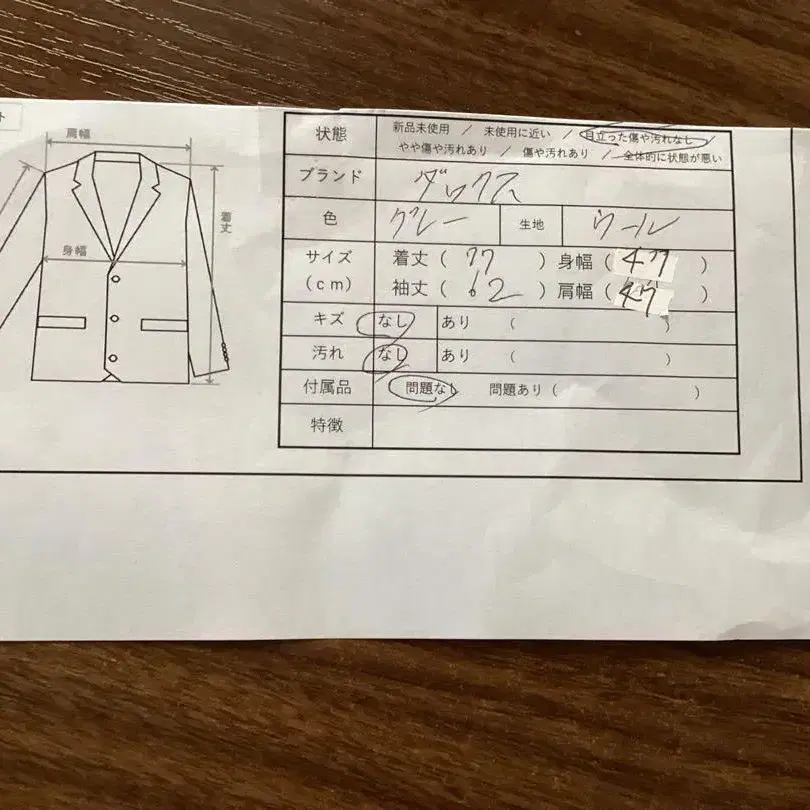 ト
肩幅
着丈
身幅
状態
新品未使用 / 未使用に近い / 目立った傷や汚れなし
やや傷や汚れあり / 傷や汚れあり / 全体的に状態が悪い
ブランド ダックス
色 グレー 生地 ウール
サイズ
(cm)
着丈 ( 77 ) 身幅 ( 47 )
袖丈 ( 62 ) 肩幅 ( 47 )
キズ なし あり ( )
汚れ なし あり ( )
付属品 問題なし 問題あり ( )
特徴